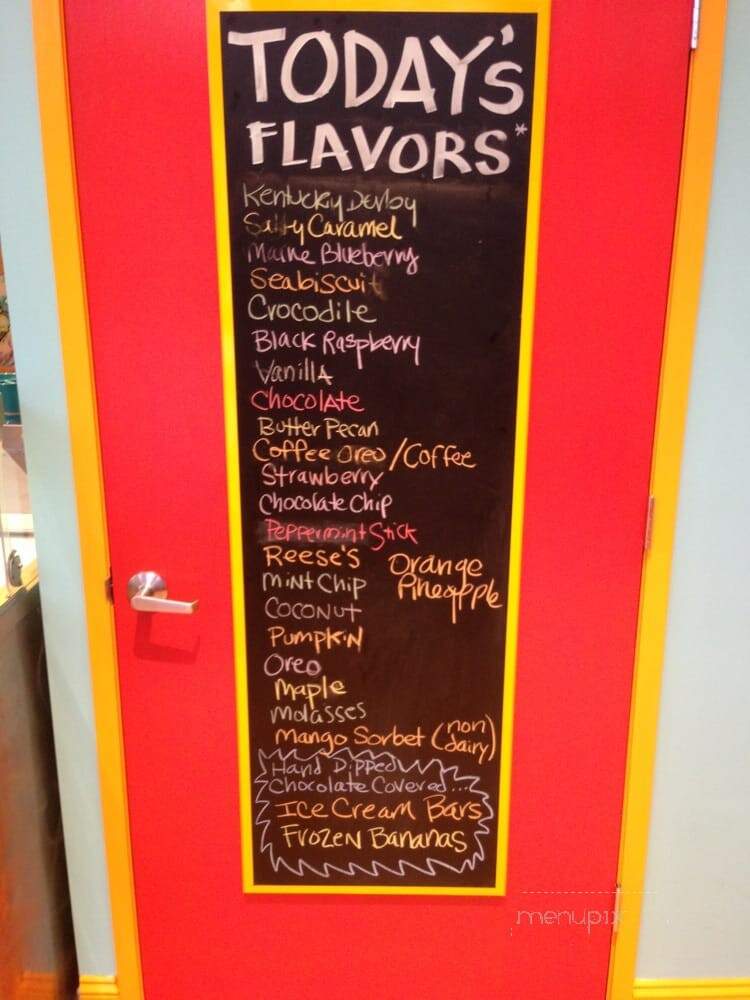 TODAY'S
FLAVORS*
Kentucky Derby
Salty Caramel
Maine Blueberry
Seabiscuit
Crocodile
Black Raspberry
Vanilla
Chocolate
Butter Pecan
Coffee Oreo / Coffee
Strawberry
Chocolate Chip
Peppermint Stick
Reese's
Orange
Pineapple
Mint Chip
Coconut
Pumpkin
Oreo
Maple
Molasses
Mango Sorbet (non dairy)
Hand Dipped
Chocolate Covered...
Ice Cream Bars
Frozen Bananas
menupix